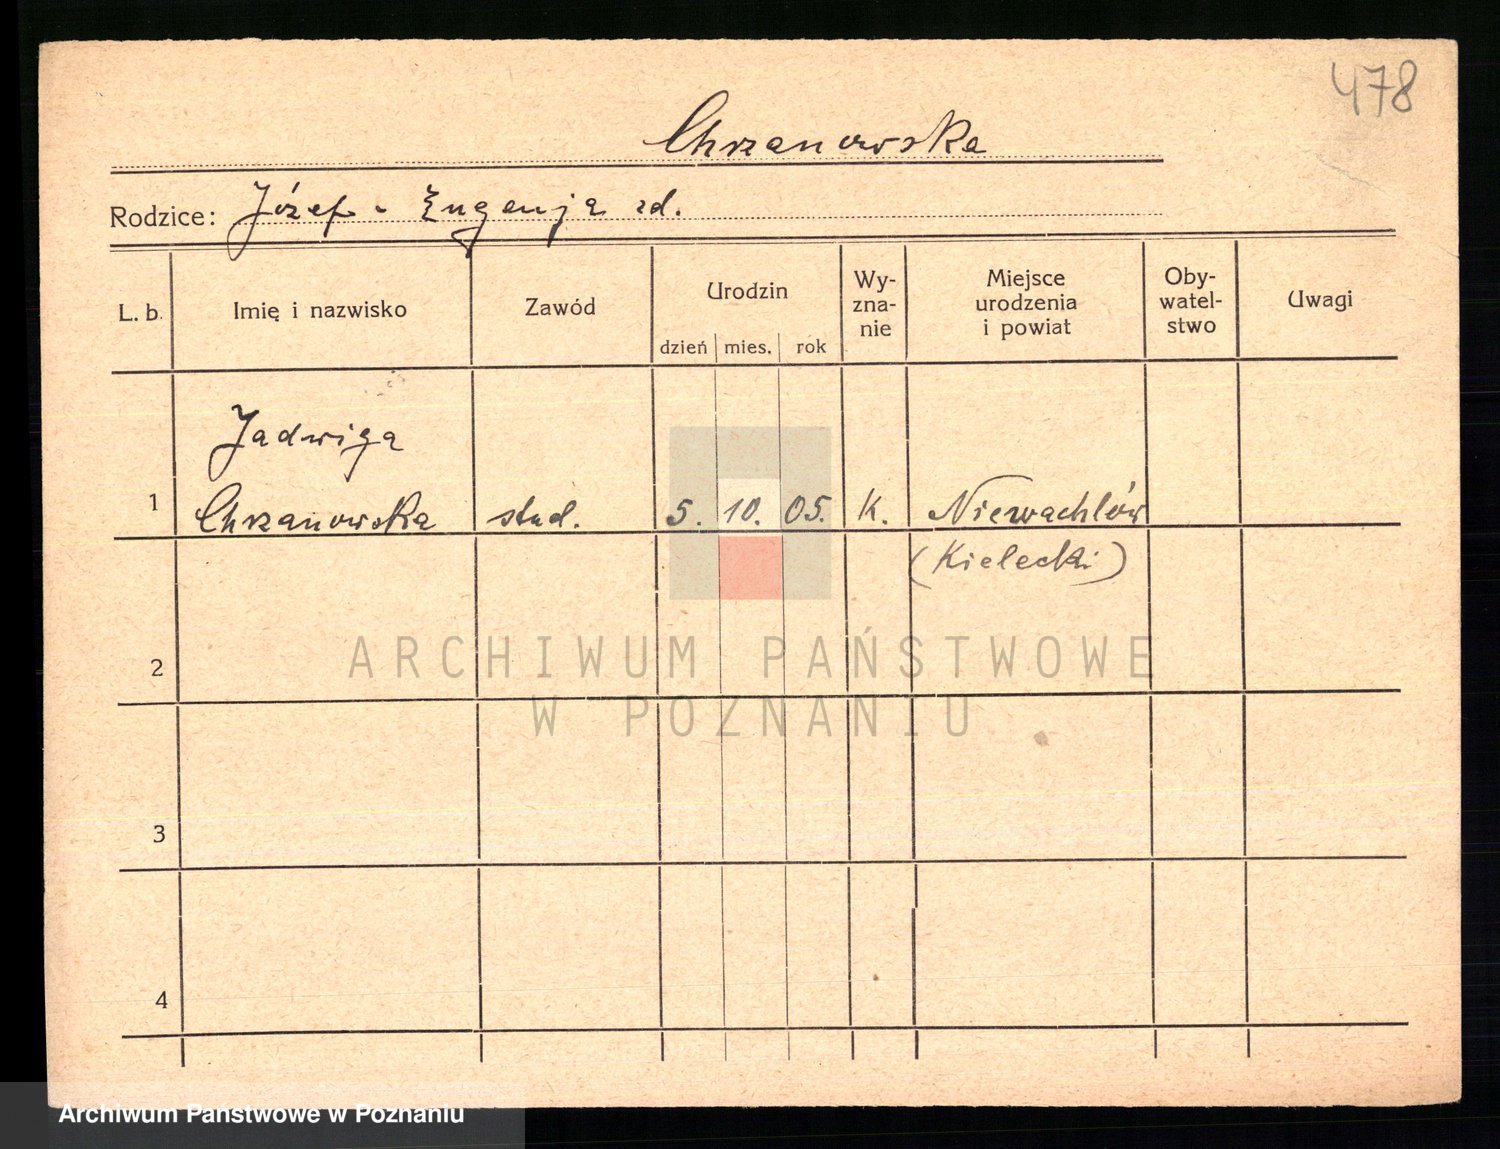 478
Chrzanowska
Rodzice: Józef - Eugenja zd.
L. b. Imię i nazwisko Zawód Urodzin Wy-zna-nie Miejsce urodzenia i powiat Oby-watel-stwo Uwagi
dzień mies. rok
Jadwiga
1 Chrzanowska stud. 5. 10. 05. K. Niewachlów
(Kielecki)
2
ARCHIWUM PAŃSTWOWE
W POZNANIU
3
4
Archiwum Państwowe w Poznaniu